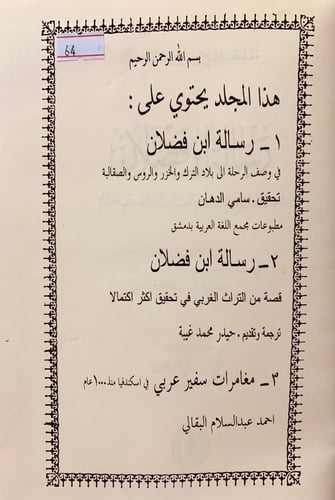 64
بسم الله الرحمن الرحيم
هذا المجلد يحتوي على :
١ ـ رسالة ابن فضلان
في وصف الرحلة الى بلاد الترك والخزر والروس والصقالبة
تحقيق . سامي الدهان
مطبوعات مجمع اللغة العربية بدمشق
٢ـ رسالة ابن فضلان
قصة من التراث الغربي في تحقيق اكثر اكتمالا
ترجمة وتقديم . حيدر محمد غيبة
٣ ـ مغامرات سفير عربي في اسكندفيا منذ ١٠٠٠ عام
احمد عبدالسلام البقالي